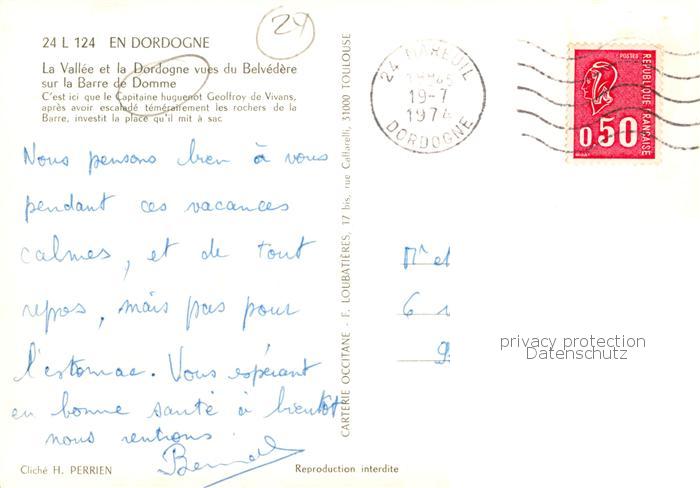 24
24 L 124 EN DORDOGNE
La Vallée et la Dordogne vues du Belvédère
sur la Barre de Domme
C'est ici que le Capitaine huguenot Geoffroy de Vivans,
après avoir escaladé témérairement les rochers de la
Barre, investit la place qu'il mit à sac
Nous pensons bien à vous
pendant ces vacances
calmes, et de tout
repos, mais pas pour
l'estomac. Vous espérant
en bonne santé à bientôt
nous rentions.
Cliché H. PERRIEN
Reproduction interdite
CARTERIE OCCITANE - F. LOUBATIÈRES, 17 bis, rue Caffarelli, 31000 TOULOUSE
24 MAREUIL
19-7
1974
DORDOGNE
POSTES
RÉPUBLIQUE FRANÇAISE
0,50
Mr et
6 1
9
privacy protection
Datenschutz